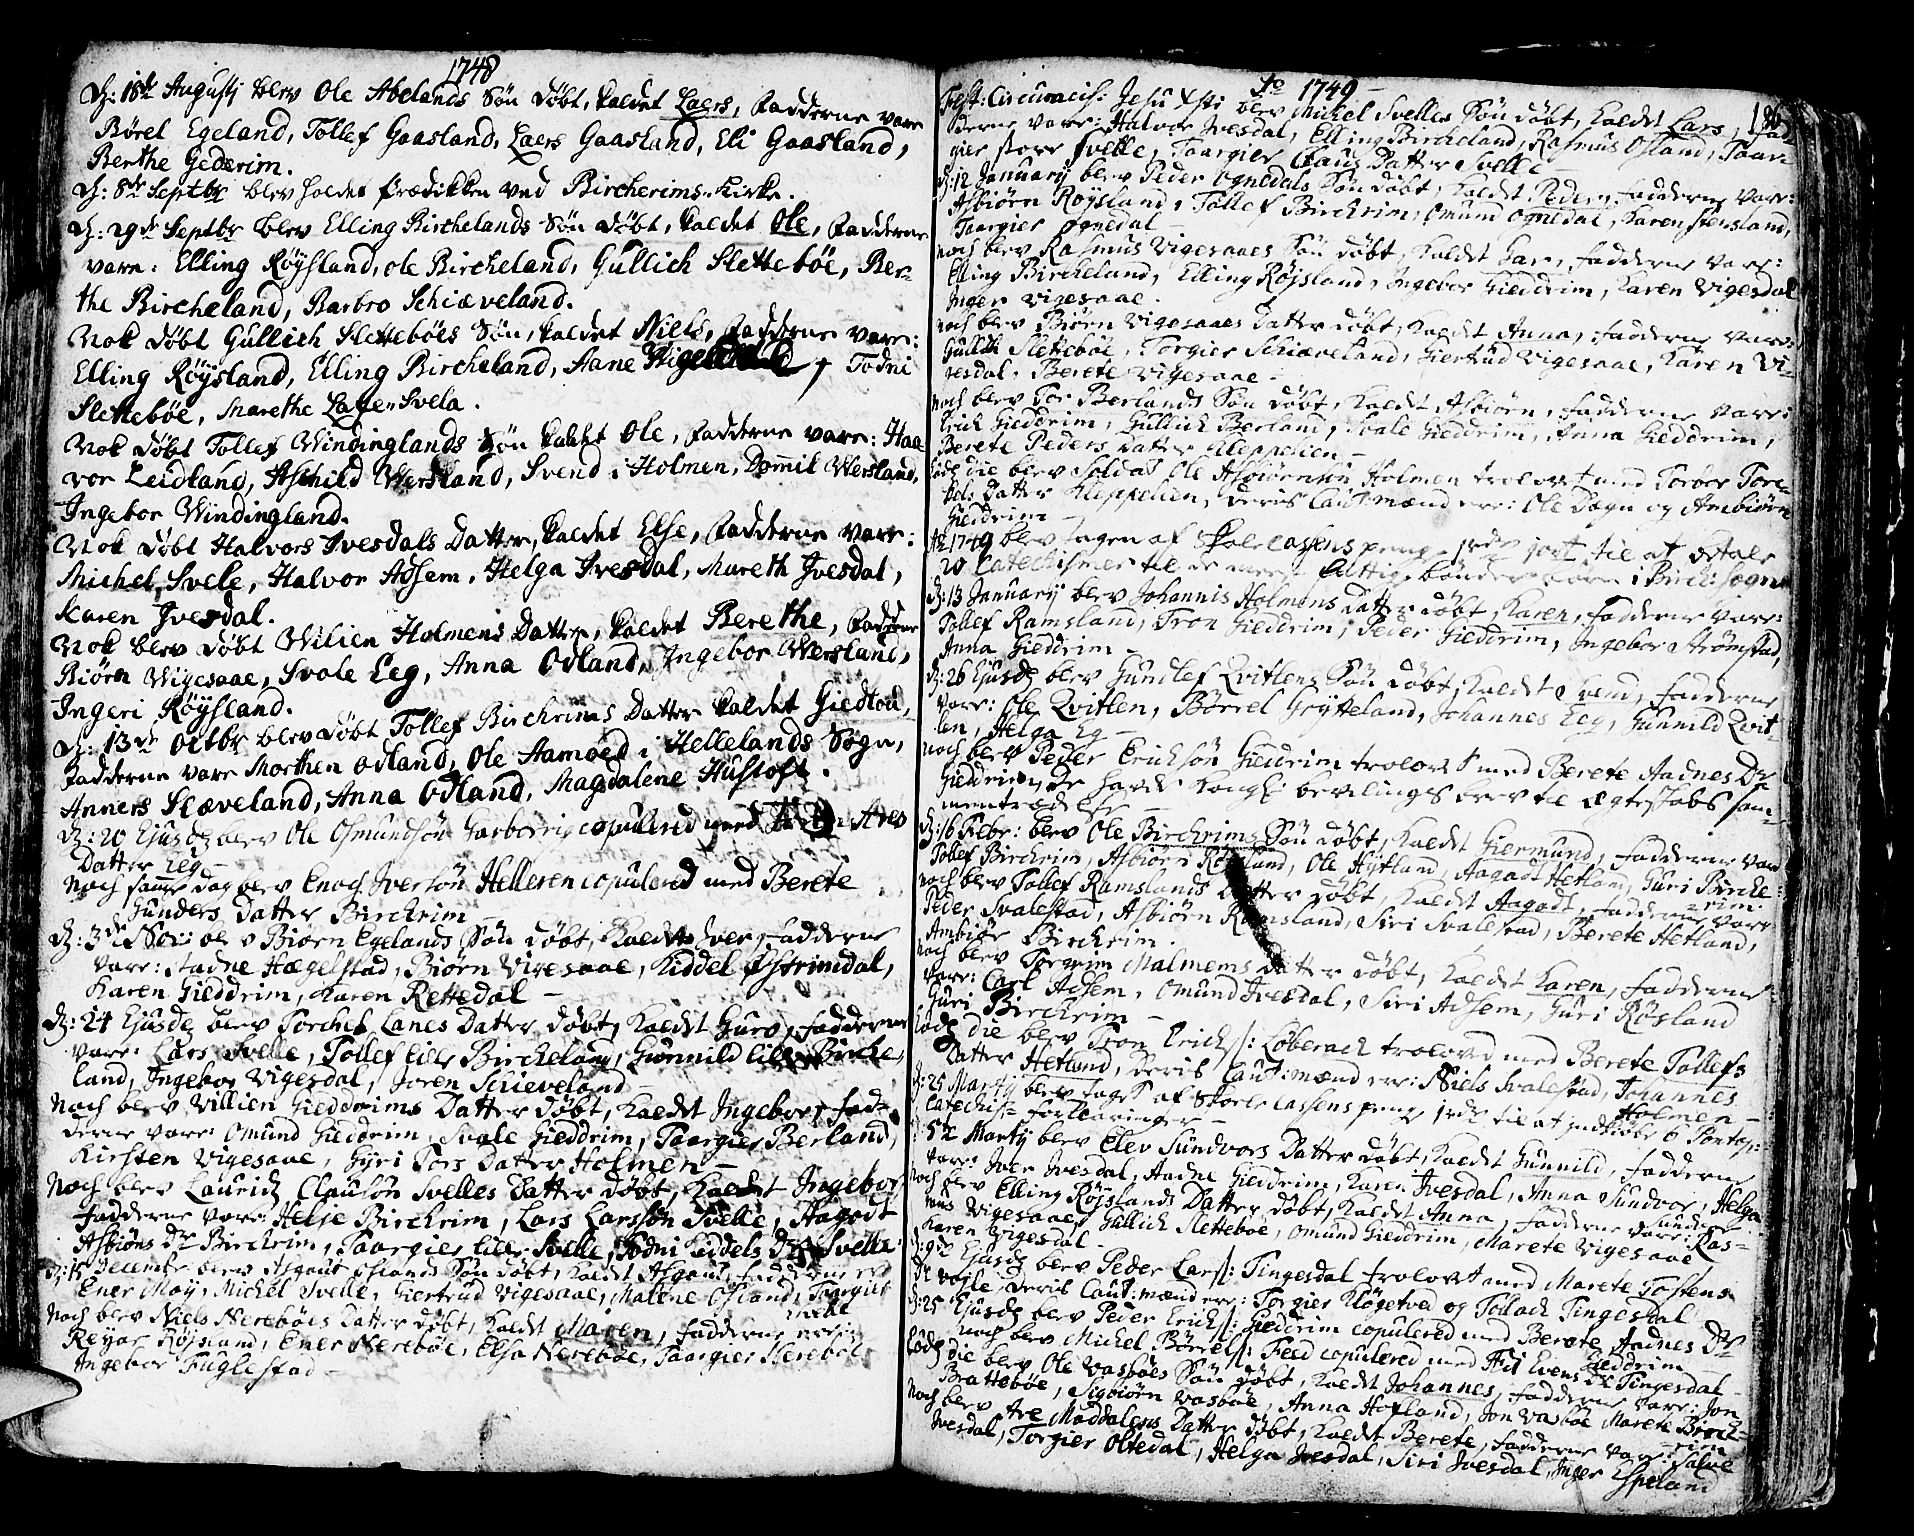 1748
d: 18de Augustj blev Ole Abelands Søn døbt, kaldet Laers, fadderne vare
Børel Egeland, Tollef Gaasland, Laers Gaasland, Eli Gaasland,
Berthe Gederim.
d: 8de Septbr blev holdet Prædikken ved Bircherims Kirke.
d: 29de Septbr blev Elling Birchelands Søn døbt, kaldet Ole, fadderne
vare: Elling Røysland, ole Bircheland, Gullich Slettebøe, Ber-
the Bircheland, Barbro Schiæveland.
Nok døbt Gullich Slettebøes Søn, kaldet Niels, fadderne vare:
Elling Røysland, Elling Bircheland, Aane, Todne
Slettebøe, Marethe Svela.
Nok døbt Tollef Windinglands Søn kaldet Ole, fadderne vare: Haa
vor Leidland, Aschild Wersland, Svend i Holmen, Dommil Wersland,
Ingebor Windingland.
Nok døbt Halvors Jvesdals Datter, kaldet Else, fadderne vare:
Michel Svele, Halvor Adsem, Helga Jvesdal, Mareth Jvesdal,
Karen Jvesdal.
Nok blev døbt Wilien Holmens Datter, kaldet Berethe, fadderne
Biørn Wigesaae, Svale Eeg, Anna Odland, Ingebor Wersland,
Ingeri Røysland.
d: 13de Octbr blev døbt Tollef Birchrims Datter kaldet Giedtou,
fadderne vare Morthen Odland, Ole Aamoed i Hellelands Sogn,
Anners Slæveland, Anna Odland, Magdalene Hustoft.
d: 20 Ejusdz blev Ole Osmundsøn copulered med
Datter Eeg
noch samme dag blev Enoch Jversøn Helleren copulered med Berete
Gunders Datter Birchrim
d: 3de Nov: blev Biørn Egelands Søn døbt, kaldet Iver, fadderne
vare: Aadne Hægelstad, Biørn Vigesaae, Kiddel Østrimdal,
Karen Gieddrim, Karen Rettedal
d: 24 Ejusdz blev Torchel Lanes Datter døbt, kaldet Guro, fadderne
vare: Lars Svelle, Tollef lille Bircheland, Gunnild lille Birche
land, Ingebor Vigesdal, Joren Schieveland
noch blev Villien Gieddrims Datter døbt, kaldet Ingebor, fad-
derne vare: Omund Gieddrim, Svale Gieddrim, Taargier Berland,
Kirsten Vigesaae, Gyri Tors Datter Holmen
noch blev Lauridz Clausøn Svelles Datter døbt, kaldet Ingebor,
fadderne vare: Helje Birchrim, Lars Larssøn Svelle, Aagodt
Asbiøns Dr Birchrim, Taargier lille Svelle, Todni Kiddels Dr Svelle
d: 15 December blev Asgaut Oslands Søn døbt, kaldet Asgaut, fadderne
Ener Moy, Michel Svelle, Giertrud Vigesaae, Malene Osland, Taargier
noch blev Niels Nerebøes Datter døbt, kaldet Maren, fadderne
Reyar Røjsland, Ener Nerebøe, Elsa Nerebøe, Taargier Nerebøe
Ingebor Fuglestad
Ao 1749
186
Fest: Circumcis: Jesu Xsti blev Michel Svelles Søn døbt, kaldet Lars, fad-
derne vare: Halvor Jvesdal, Elling Bircheland, Rasmus Osland, Taar-
gier store Svelle, Taargier Claus Datter Svelle
d: 12 January blev Peder Ognedals Søn døbt, kaldet Peder, fadderne vare:
Asbiørn Røysland, Tollef Birchrim, Omund Ognedal, Karen Stensland,
Taargier Ognedal
noch blev Rasmus Vigesaaes Søn døbt, kaldet Lars, fadderne vare:
Elling Bircheland, Elling Røjsland, Ingebor Gieddrim, Karen Vigesdal
Inger Vigesaae.
noch blev Biørn Vigesaaes Datter døbt, kaldet Anna, fadderne vare:
Gullich Slettebøe, Torgier Schiæveland, Giertrud Vigesaae, Karen Vi-
gesdal, Berete Vigesaae
noch blev Tor Berlands Søn døbt, kaldet Asbiørn, fadderne vare:
Erich Gieddrim, Gullich Berland, Svale Gieddrim, Anna Gieddrim,
Berete Peders Datter Kleppelien
Eodz die blev Soldat Ole Asbiørnsøn Holmen trolovet med Torbor Tore-
kels Datter Kleppelien, deris Caut:mænd ere: Ole Døgn og Ambiørn
Gieddrim
1749 blev tagen af Skole cassens penge til at betale
20 Catechismer til de fattige bønder børn i Birch: Sogn
d: 13 January blev Johannis Holmens Datter døbt, Karen, fadderne vare:
Tollef Ramsland, Tron Gieddrim, Peder Gieddrim, Ingebor Strømstad,
Anna Gieddrim
d: 26 Ejusdz blev Gundlef Qvitlens Søn døbt, kaldet Svend, fadderne
vare: Ole Qvitlen, Børrel Grytteland, Johannes Eeg, Gunnild Qvit-
len, Helga Eg
noch blev Peder Erichsøn Gieddrim trolovet med Berete Aadnes Dr
Gieddrim, de hafde kongl: bevilings brev til ægteskabs sam-
mentrædelse
d: 16 Febr: blev Ole Birchrims Søn døbt, kaldet Giermund, fadderne vare
Tollef Birchrim, Asbiørn Røysland, Ole Hytland, Aagodt Hetland, Guri Birche-
rim
noch blev Tollef Ramslands Datter døbt, kaldet Aagodt, fadderne vare
Peder Svalestad, Asbiørn Ramsland, Siri Svalestad, Berete Hetland,
Ambiør Birchrim.
noch blev Torgrim Malmems Datter døbt, kaldet Karen, fadderne
vare: Carl Adsem, Omund Jvesdal, Siri Adsem, Guri Røsland
Guri Birchrim
Eodz die blev Tron Erichs: Løbrach trolovd med Berete Tollefs
Datter Hetland, deris Caut:mænd ere: Niels Svalestad, Johannes
Holmen
d: 25 Martj blev taget af Skole cassens penge til at indkiøbe 6 Pontop:
Catechis: forklaringer
5te Martj blev Elev Sundvors Datter døbt, kaldet Gunnild, fadderne
vare: Iver Jvesdal, Aadne Gieddrim, Karen Jvesdal, Anna Sundvor, Helga
Sundvor
noch blev Elling Røjslands Datter døbt, kaldet Anna, fadderne vare: Ras-
mus Vigesaae, Gullich Slettebøe, Omund Gieddrim, Marete Vigesaae
Karen Vigesdal
d: 9de Ejusdz blev Peder Lars: Tingesdal trolovet med Marete Tostens
Dr deris Caut:mænd ere: Torgier Kløgetved og Tollach Tingesdal
d: 25 Ejusdz blev Peder Erichs: Gieddrim copulered med Berete Aadnes Dr
Gieddrim
noch blev Michel Børrels: Feed copulered med Evens Dr Tingesdal
Eodz die blev Ole Vasbøes Søn døbt, kaldet Johannes, fadderne vare: Jon
Brattebøe, Sigbiørn Vasbøe, Anna Hofland, Jon Vasbøe Marete Birch-
rim
noch blev Maddalens Datter døbt, kaldet Berete, fadderne vare: Salve
Jvesdal, Torgier Oltedal, Helga Jvesdal, Siri Jvesdal, Inger Espeland